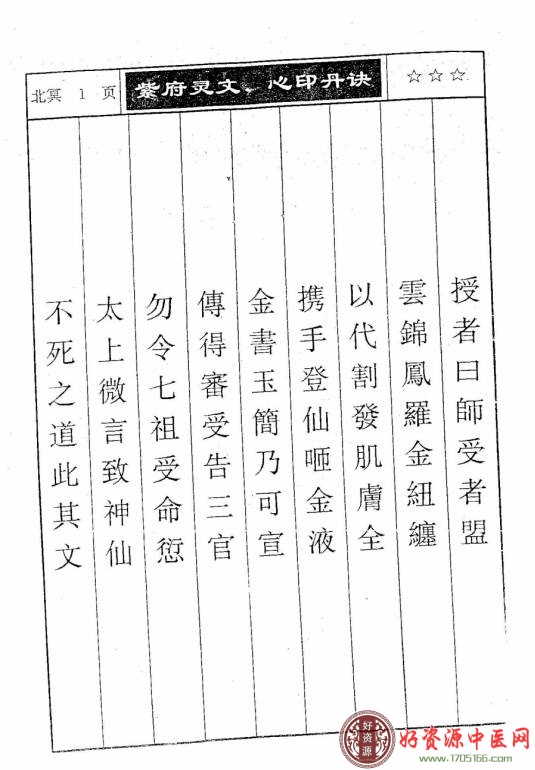 北冥 1 页
紫府灵文、心印丹诀
☆☆☆
授者曰師受者盟
雲錦鳳羅金紐纏
以代割發肌膚全
携手登仙咂金液
金書玉簡乃可宣
傳得審受告三官
勿令七祖受命愆
太上微言致神仙
不死之道此其文
好资源
好资源中医网
www.1705166.com